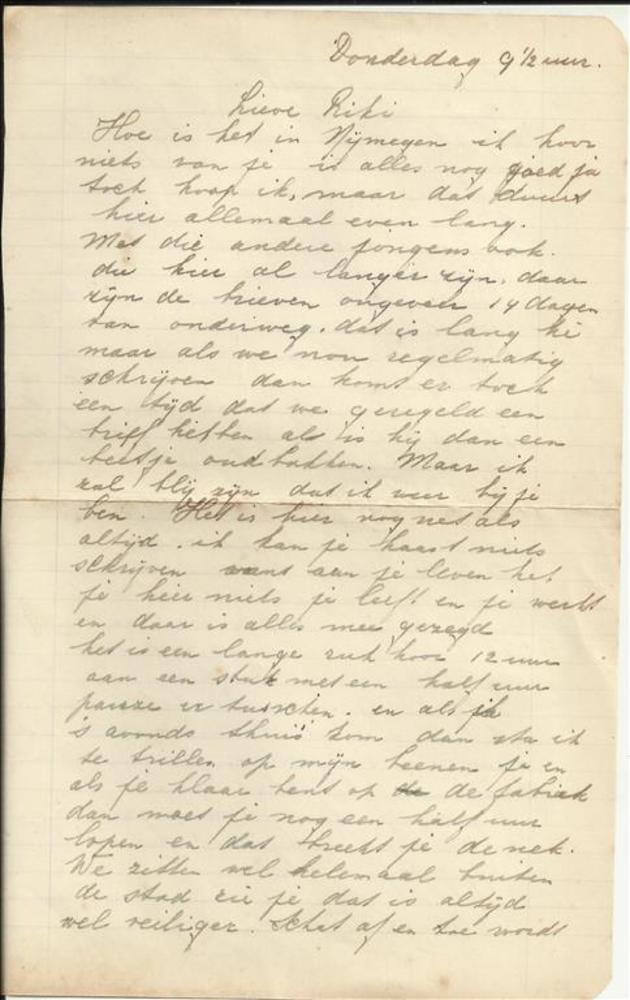 Donderdag 9 1/2 uur.
Lieve Riki
Hoe is het in Nijmegen ik hoor
niets van je is alles nog goed ja
toch hoop ik, maar dat duurt
hier allemaal even lang.
Met die andere jongens ook.
die hier al langer zijn. daar
zijn de brieven ongeveer 14 dagen
van onderweg. dat is lang hé
maar als we nou regelmatig
schrijven dan komt er toch
een tijd dat we geregeld een
brief hebben al is hij dan een
beetje oudbakken. Maar ik
zal blij zijn dat ik weer bij je
ben. Het is hier nog net als
altijd. ik kan je haast niets
schrijven want aan je leven heb
je hier niets je leeft en je werkt
en daar is alles mee gezegd
het is een lange ruk hoor 12 uur
aan een stuk met een half uur
pauze er tusschen. en als ik
's avonds thuis kom dan sta ik
te trillen op mijn beenen ja en
als je klaar bent op de fabriek
dan moet je nog een half uur
lopen en dat breekt je de nek.
We zitten wel helemaal buiten
de stad zie je dat is altijd
wel veiliger. Schat af en toe wordt